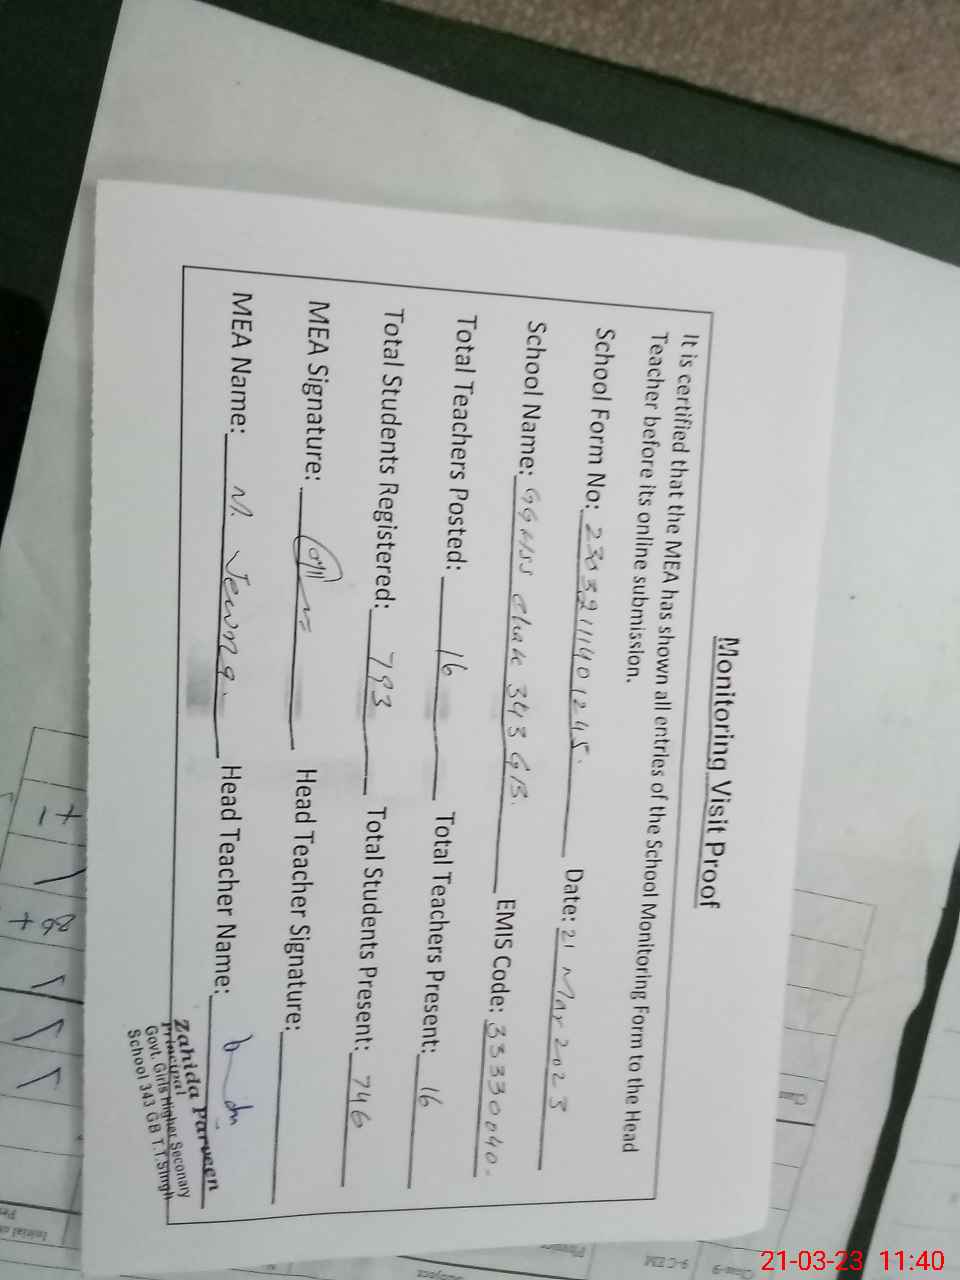 Monitoring Visit Proof
It is certified that the MEA has shown all entries of the School Monitoring Form to the Head
Teacher before its online submission.
School Form No: 23032111401245. Date: 21 Mar 2023
School Name: GGHSS Chak 343 GB. EMIS Code: 33330040.
Total Teachers Posted: 16 Total Teachers Present: 16
Total Students Registered: 793 Total Students Present: 746
MEA Signature: Head Teacher Signature:
MEA Name: M. Head Teacher Name:
Zahida Parveen
Principal
Govt. Girls Higher Seconary
School 343 GB T.T.Singh
21-03-23 11:40